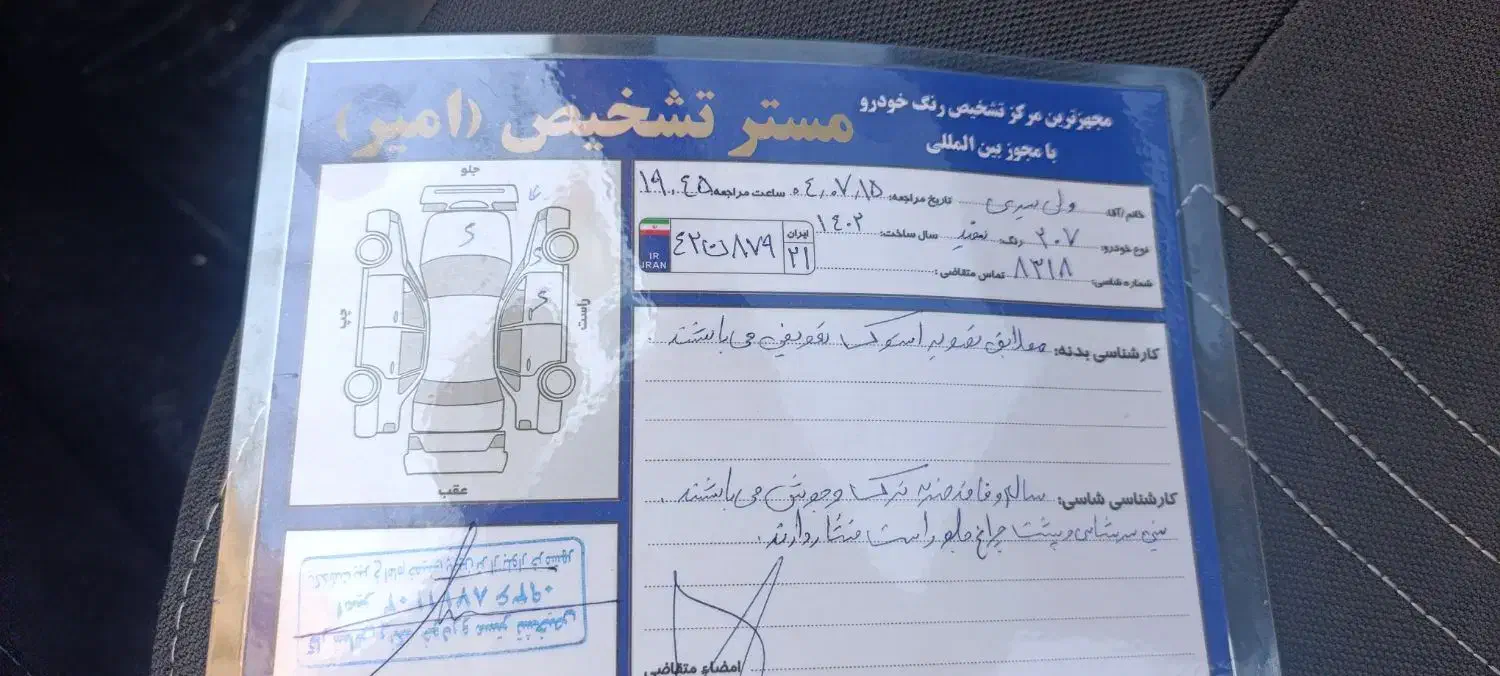 مجهزترین مرکز تشخیص رنگ خودرو
با مجوز بین المللی
مستر تشخیص (امیر)
خانم/آقا: ولی تاریخ مراجعه: ۰۴،۰۷،۱۵ ساعت مراجعه: ۱۹،۴۵
نوع خودرو: ۲۰۷ رنگ: سفید سال ساخت: ۱۴۰۲
شماره شاسی: ۸۳۱۸ تماس متقاضی:
ایران
۲۱
۸۷۹ ۴۲
I.R
IRAN
جلو
چپ
راست
عقب
کارشناسی بدنه: مطابق تصویر استوک تعویض می باشند.
کارشناسی شاسی: سالم و فاقد ضربه ترک و جوش می باشند.
سینی سرشاسی و پشت چراغ جلو راست فشار دارند.
امضاء متقاضی